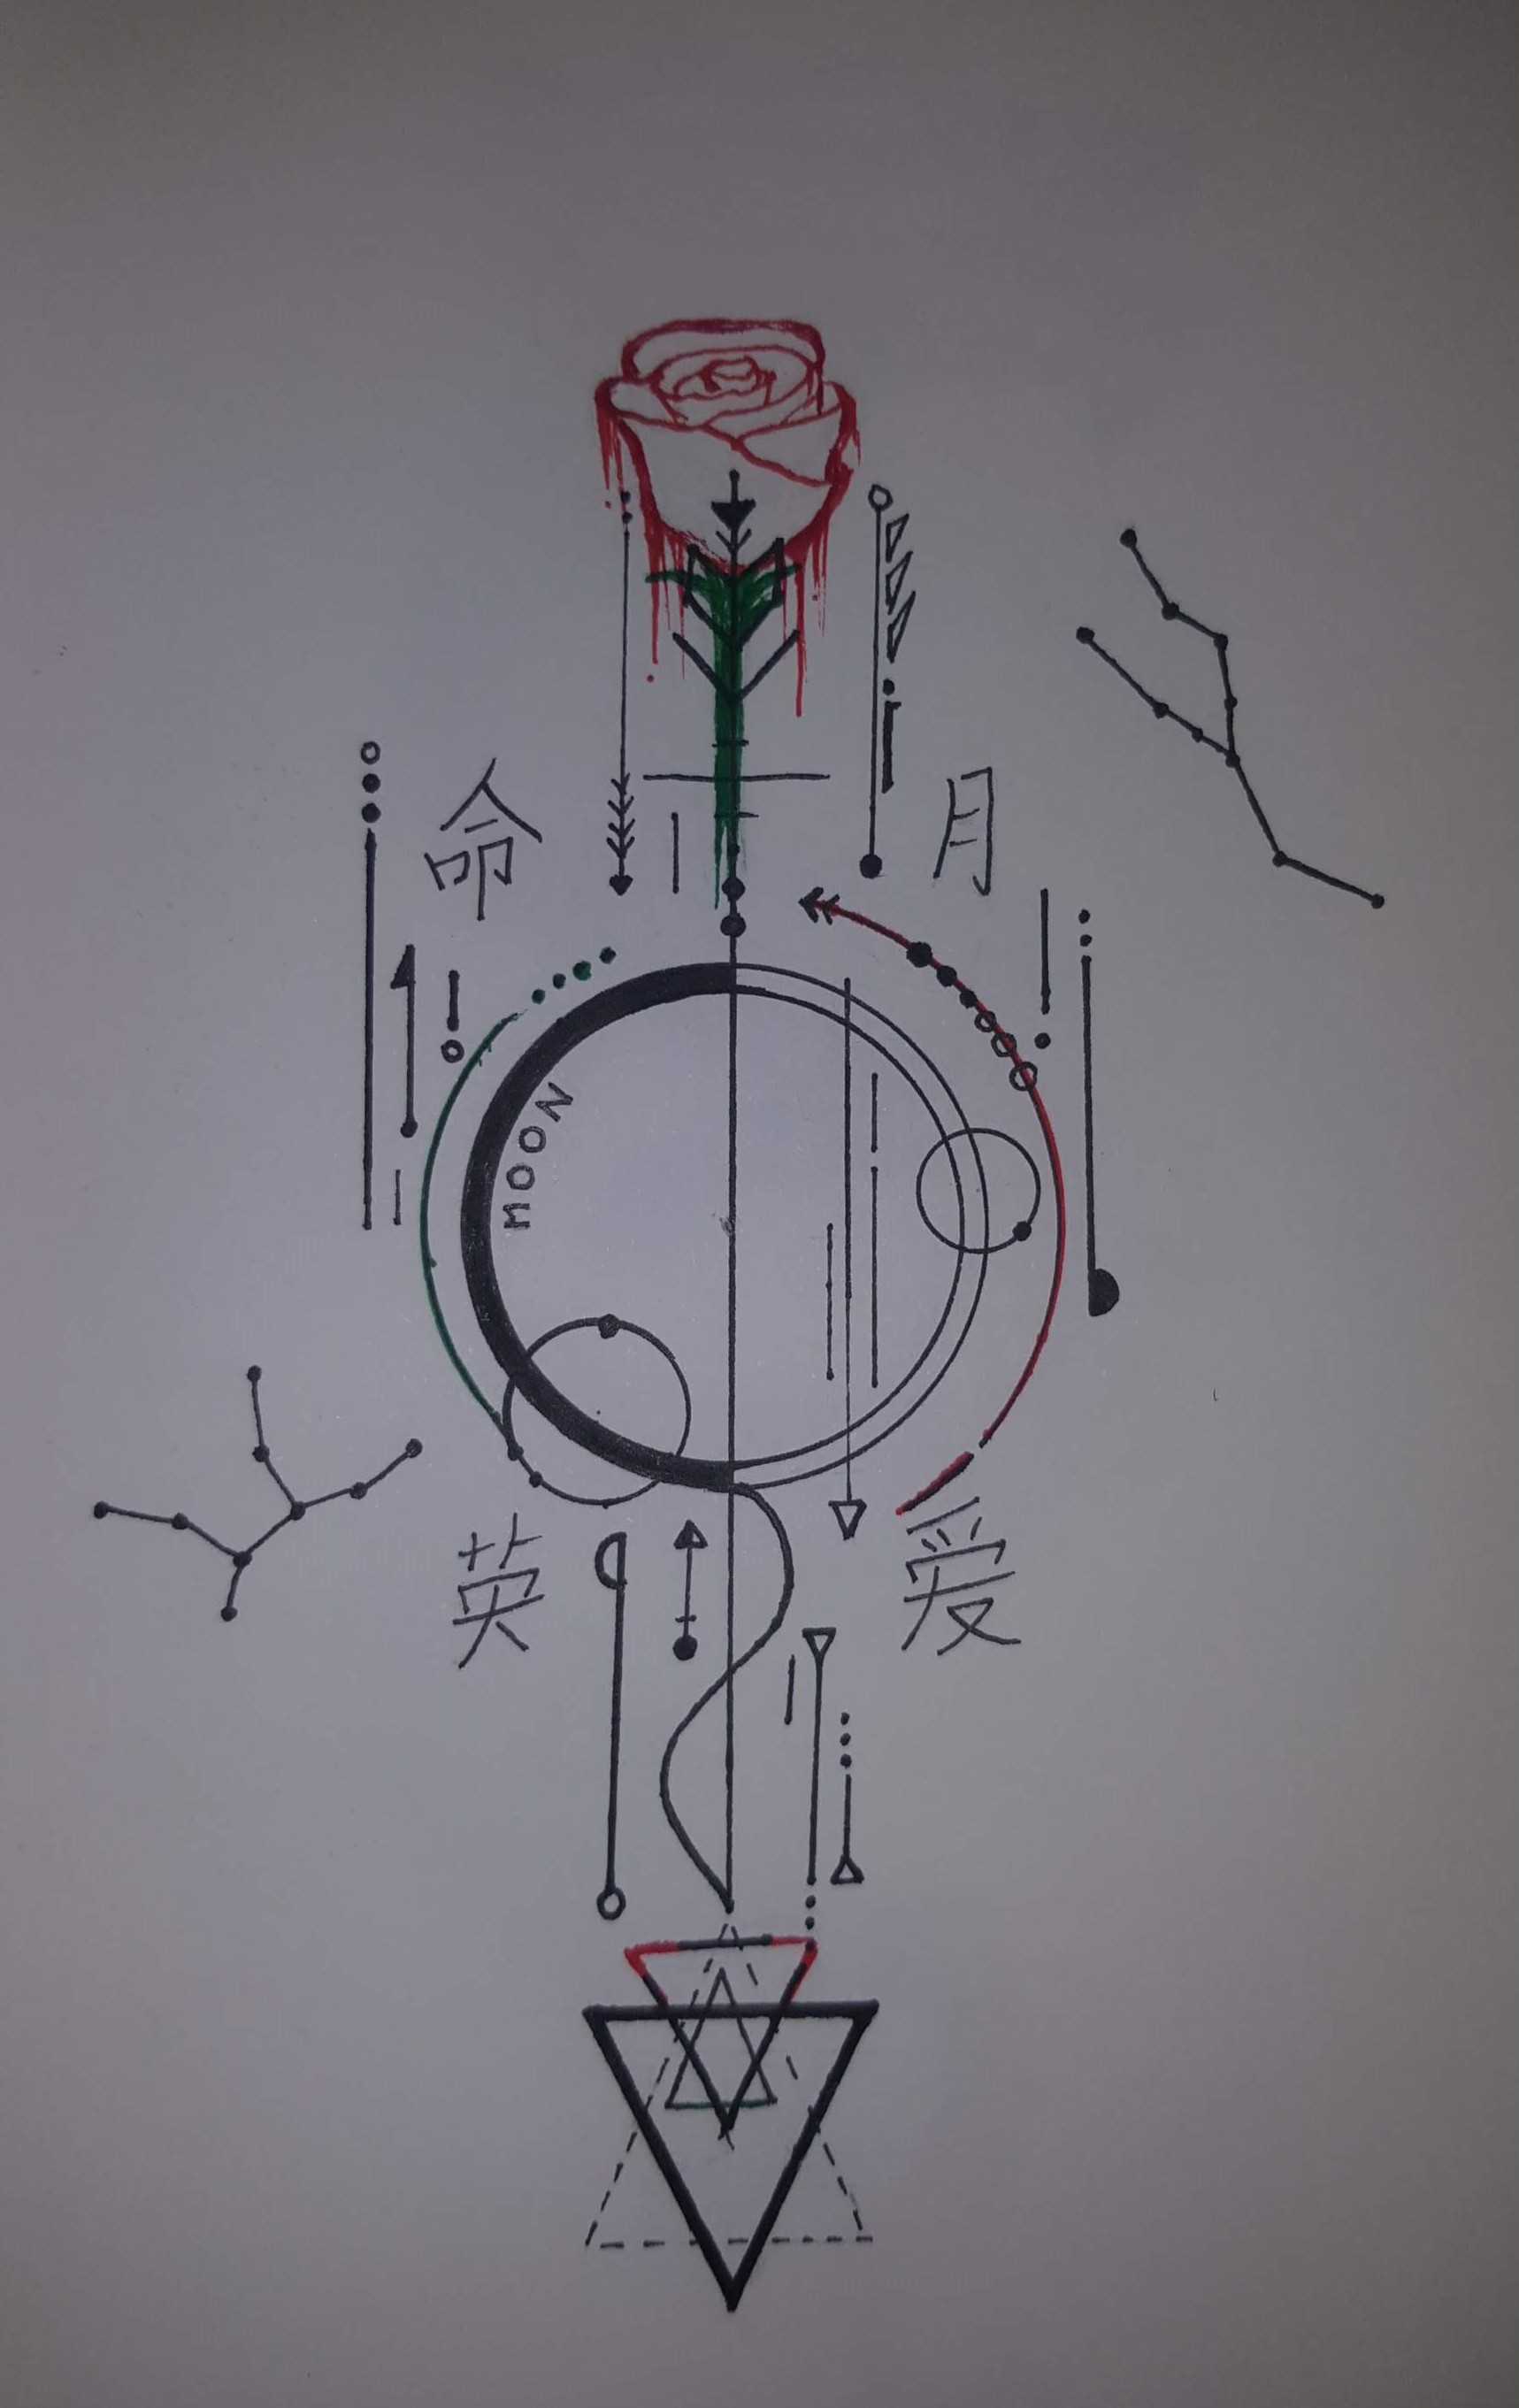 命
月
MOON
英
爱